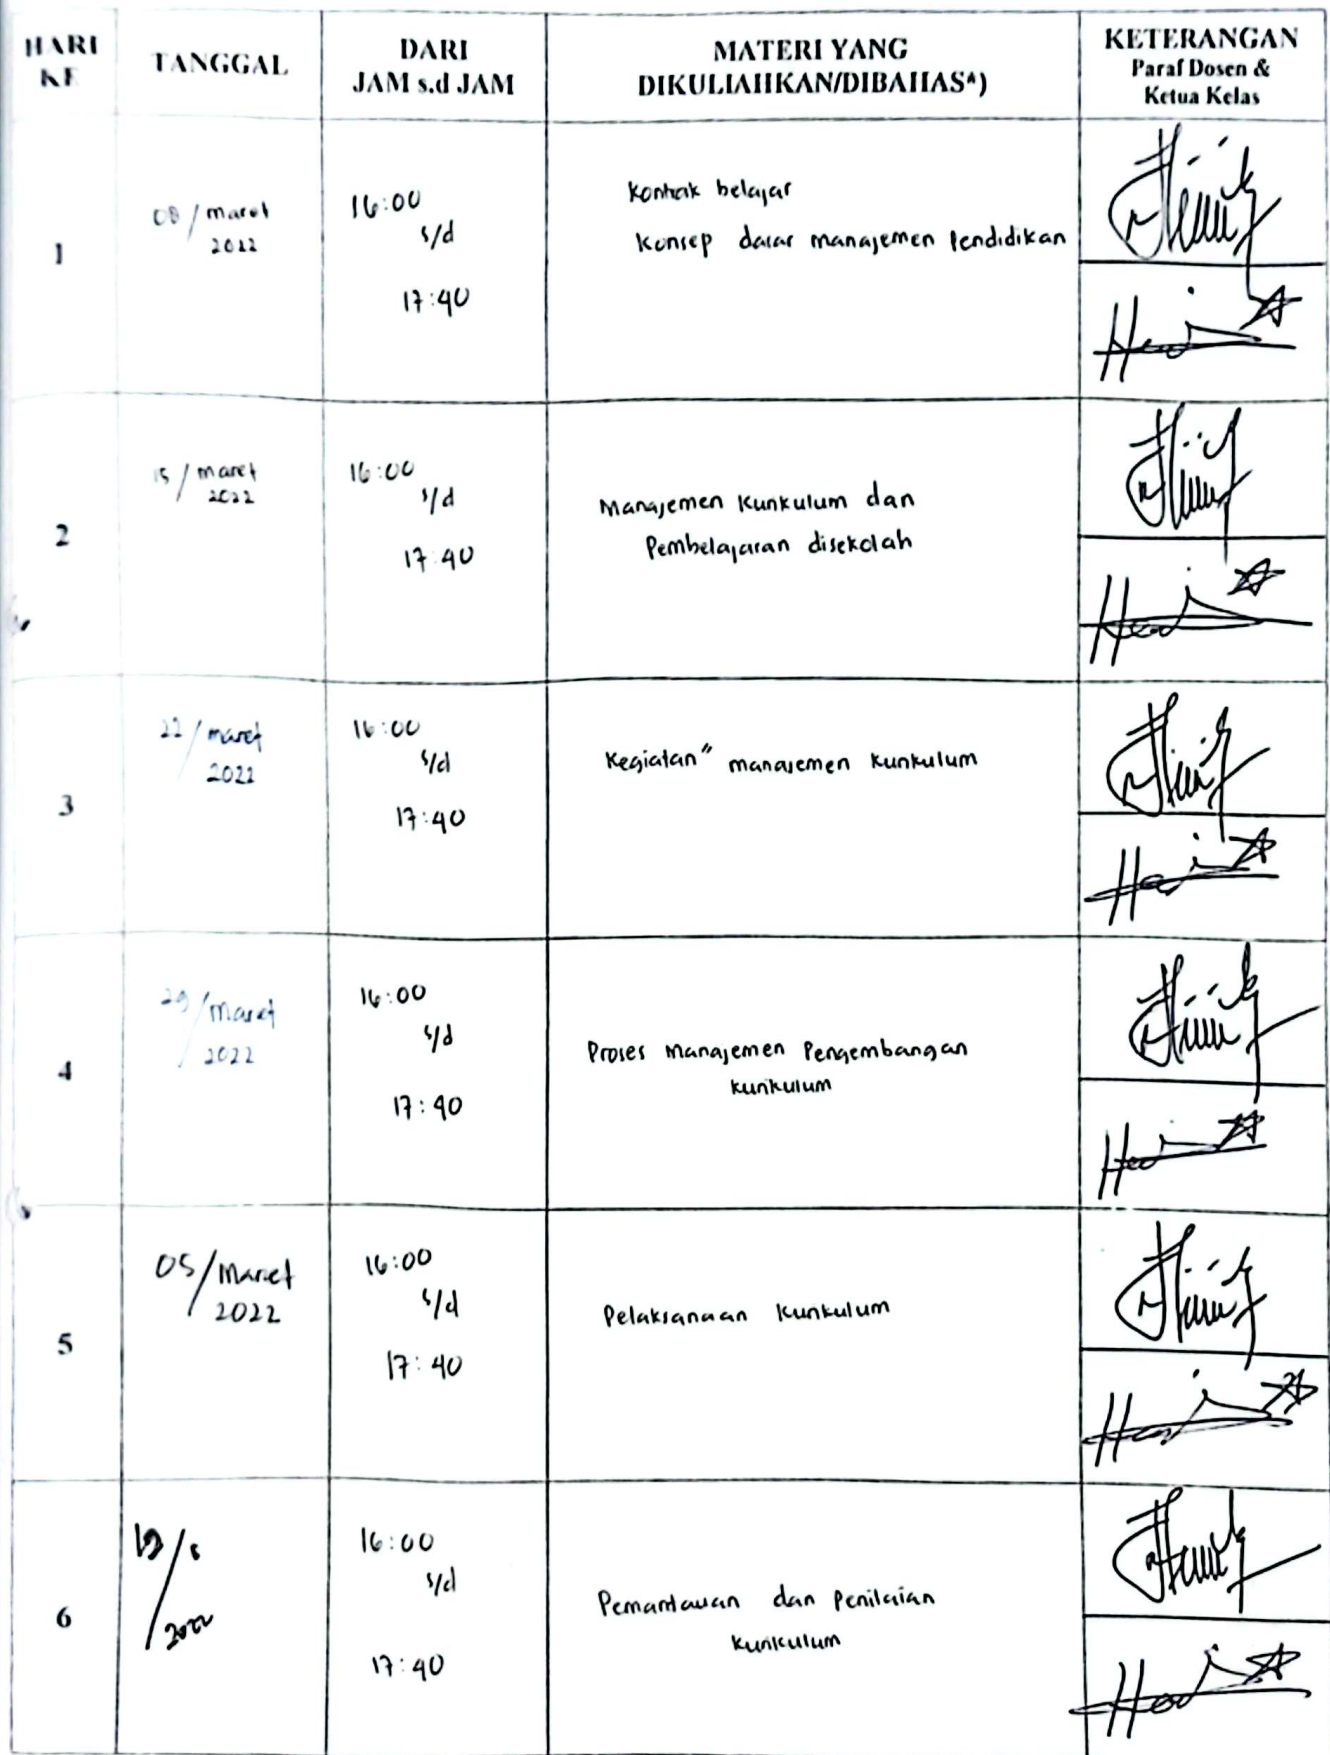 HARI
KE
TANGGAL
DARI
JAM s.d JAM
MATERI YANG
DIKULIAHKAN/DIBAHAS*)
KETERANGAN
Paraf Dosen &
Ketua Kelas
1
08/ maret
2022
16:00
s/d
17:40
Kontrak belajar
Konsep dasar manajemen Pendidikan
2
15/ maret
2022
16:00
s/d
17:40
Manajemen Kurikulum dan
Pembelajaran disekolah
3
22/ maret
2022
16:00
s/d
17:40
Kegiatan" manajemen kurikulum
4
29/ Maret
2022
16:00
s/d
17:40
Proses Manajemen Pengembangan
kurikulum
5
05/ Maret
2022
16:00
s/d
17:40
Pelaksanaan Kurikulum
6
2022
16:00
s/d
17:40
Pemantauan dan Penilaian
Kurikulum